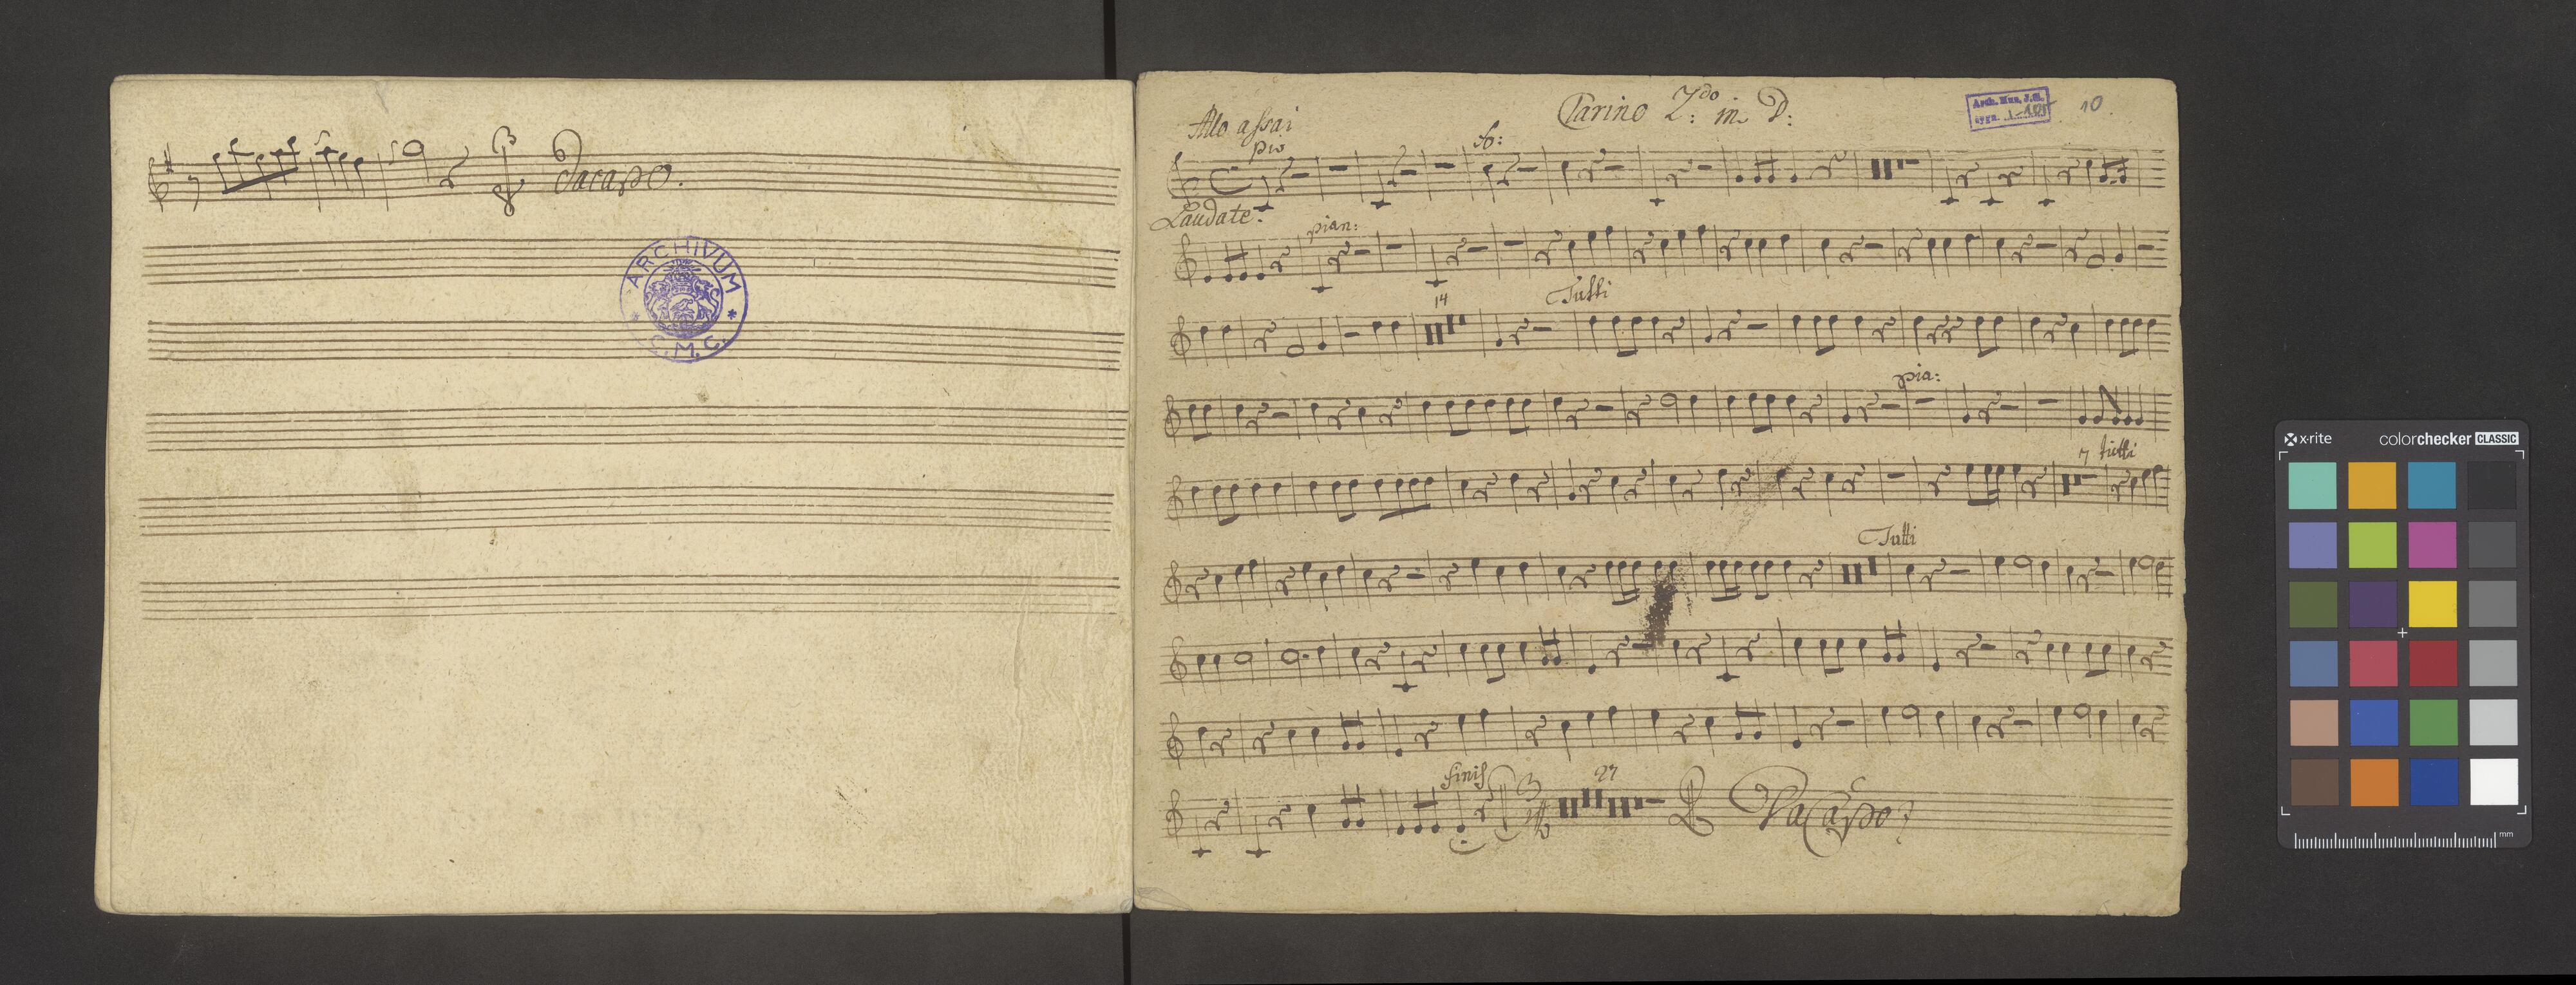 Dacapo.
ARCHIVUM
C.M.C.
Clarino 2do: in D:
10.
Allo assai
pio
fo:
Laudate.
pian:
14
Tutti
pia:
7 tutti
Tutti
finis
27
DaCapo
x-rite
colorchecker CLASSIC
mm